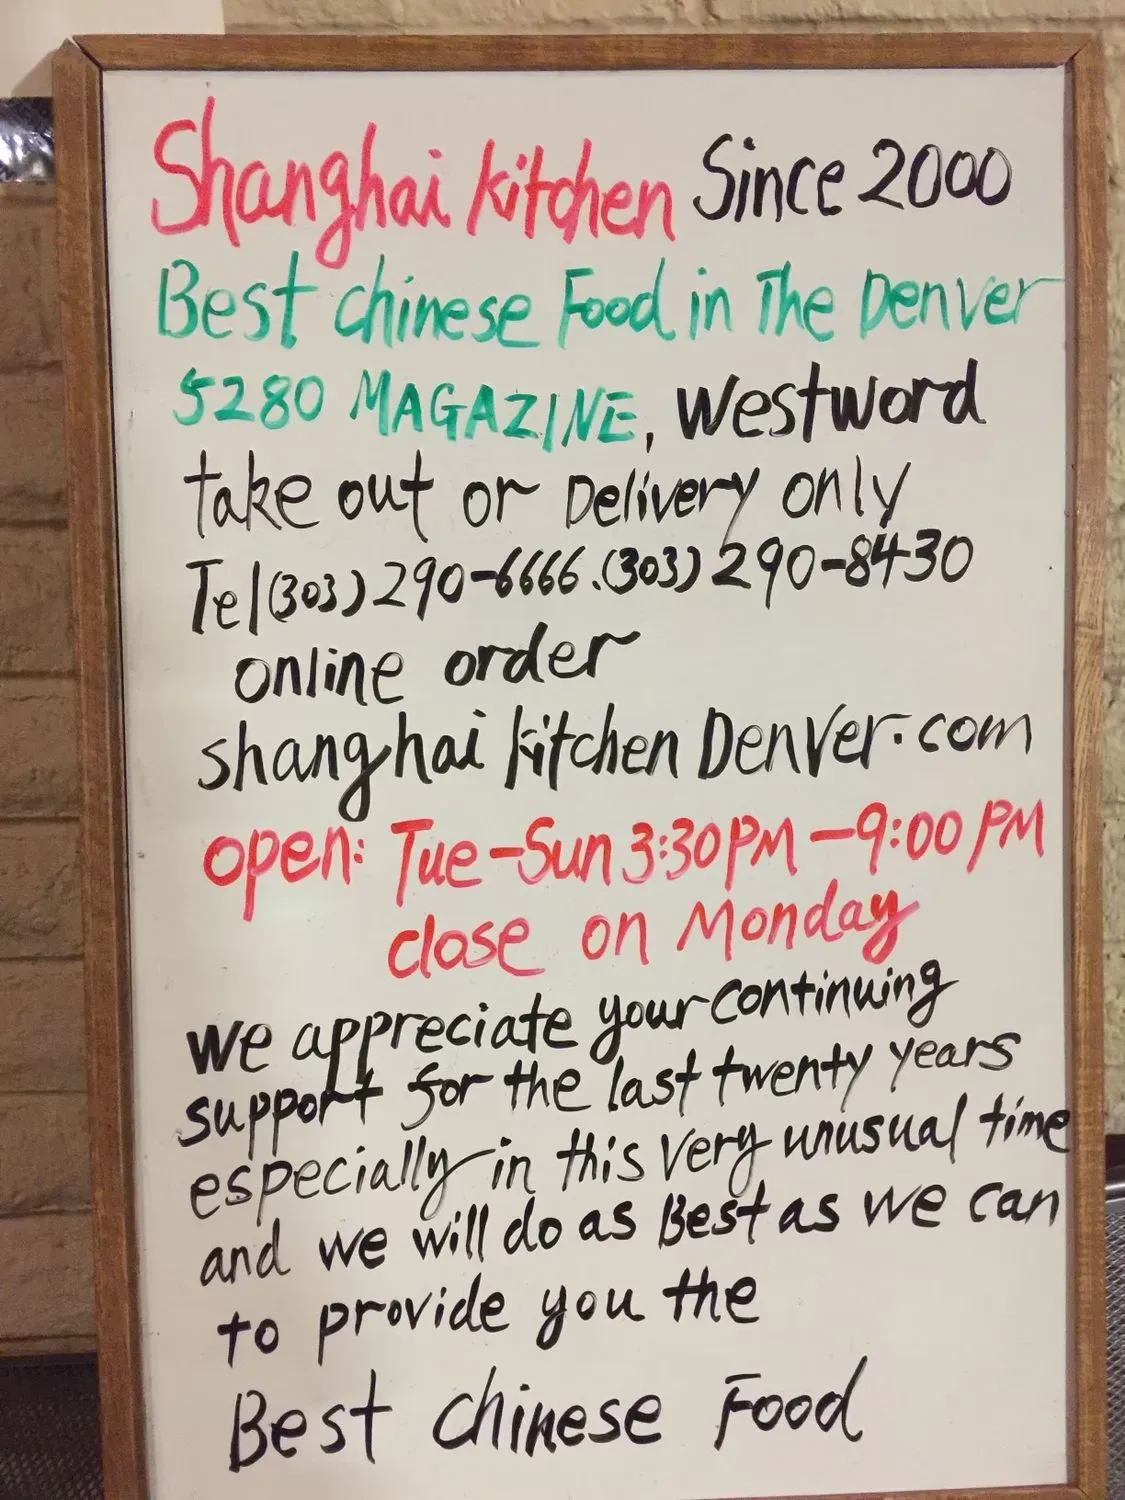 Shanghai Kitchen Since 2000
Best chinese Food in The Denver
5280 MAGAZINE, Westword
take out or Delivery only
Tel (303) 290-6666. (303) 290-8430
online order
shanghai kitchen Denver.com
open: Tue-Sun 3:30PM-9:00PM
close on Monday
we appreciate your continuing
support for the last twenty years
especially in this very unusual time
and we will do as Best as we can
to provide you the
Best chinese Food